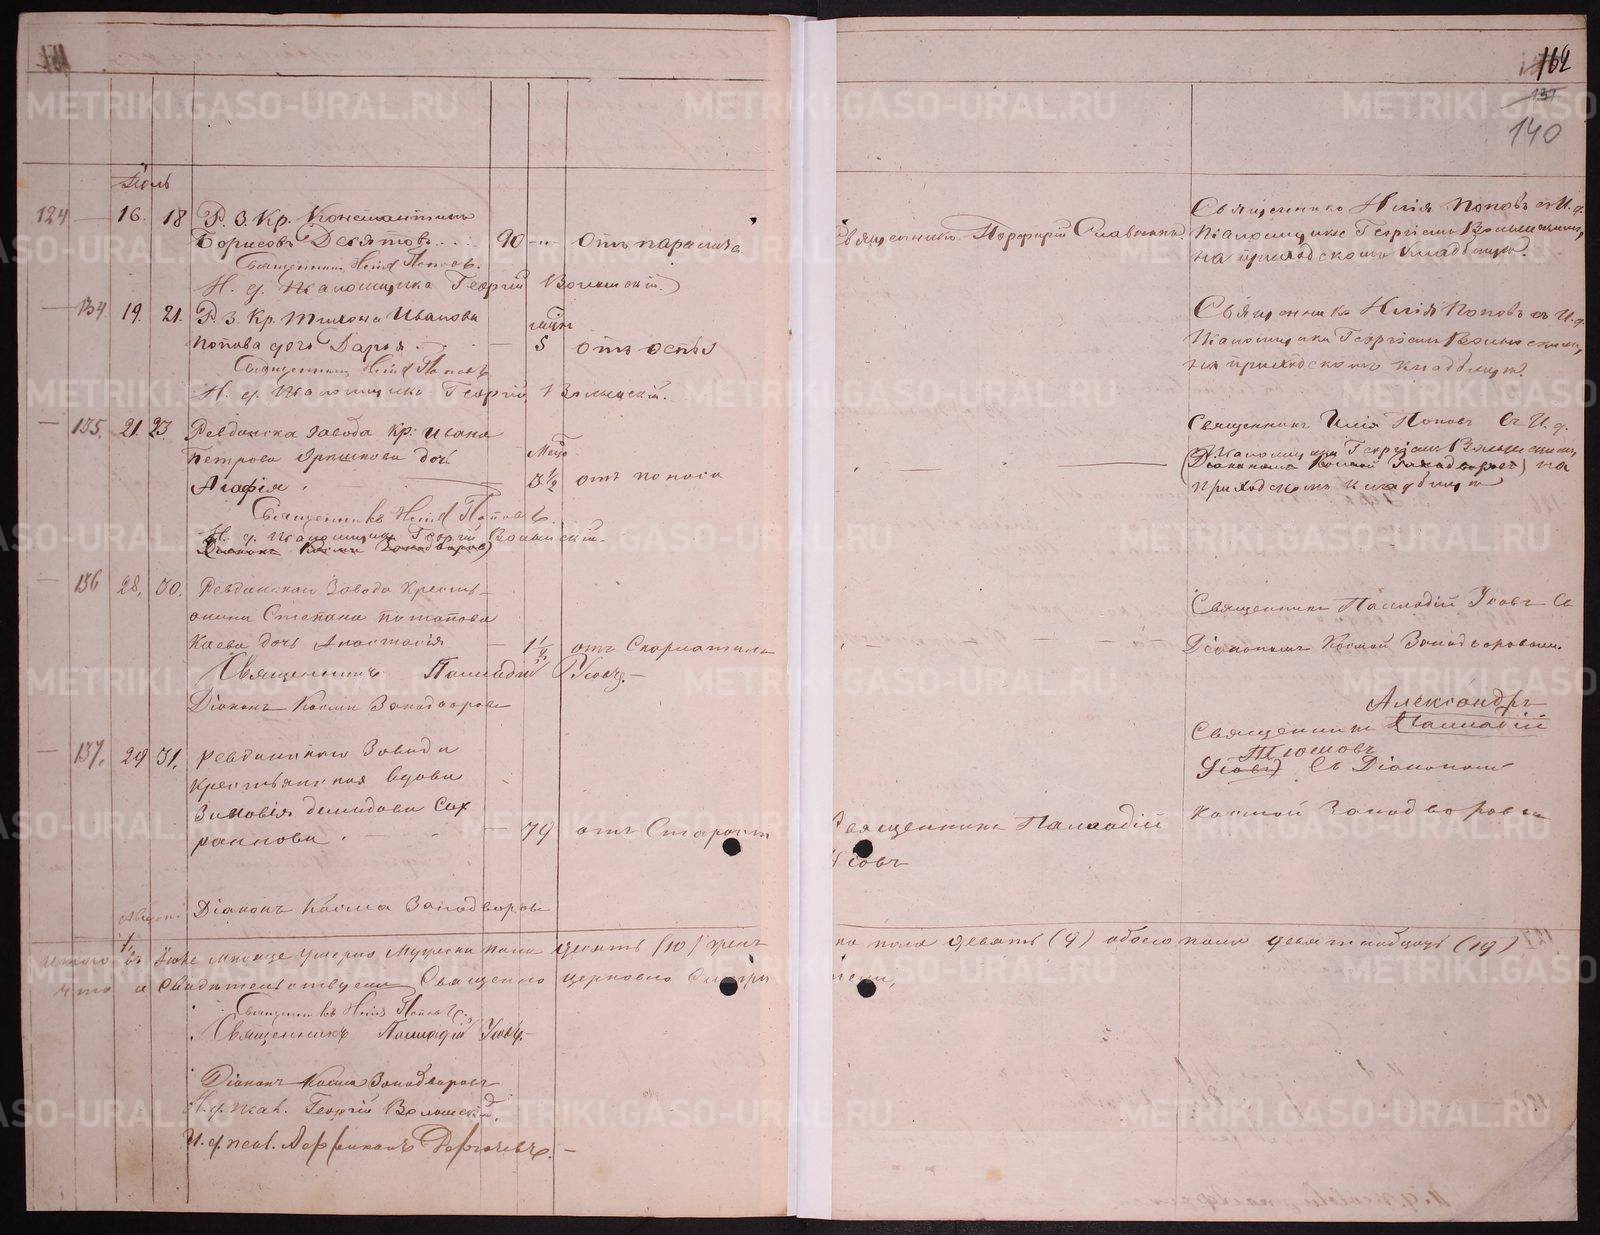 162
137
140
Июль
124 16. 18 Р. З. Кр. Константинъ
Борисовъ Десятовъ 90 отъ паралича
Священникъ Илія Поповъ.
И. д. Псаломщика Георгій Волынскій.
Священникъ Порфирій Славнинъ.
Священникъ Илія Поповъ съ И. д.
Псаломщика Георгіемъ Волынскимъ,
на приходскомъ кладбищѣ.
134 19. 21. Р. З. Кр. Ивановa
Попова дочь Дарья 5 отъ оспы
Священникъ Илія Поповъ
И. д. Псаломщика Георгій Волынскій.
Священникъ Илія Поповъ съ И. д.
Псаломщика Георгіемъ Волынскимъ,
на приходскомъ кладбищѣ.
135, 21. 23. Ревдинска завода кр: Ивана
Петрова дочь
Агафія. 3 1/2 отъ поноса
Священникъ Илія Поповъ.
И. д. Псаломщика Георгій Волынскій.
Діаконъ Косма Западворовъ
Священникъ Илія Поповъ съ И. д.
Псаломщика Георгіемъ Волынскимъ
(Діакономъ Космой Западворов) на
приходскомъ кладбищѣ
136 28, 30. Ревдинскаго Завода Кресть-
янина Степана Потапова
Каева дочь Анастасія 1 1/2 отъ Скарлатины
Священникъ Палладій Усовъ.
Діаконъ Косма Западворовъ
Священникъ Палладій Усовъ съ
Діакономъ Космой Западворовымъ.
137, 29 31. Ревдинскаго Завода
Крестьянская вдова
Зиновія Демидова Сах
79 отъ Старости
Священникъ Палладій
Усовъ
Александръ
Священникъ Палладій
Усовъ съ Діакономъ
Космой Западворовы
Діаконъ Косма Западворовъ
Итого въ Іюлѣ мѣсяце умерло Мужеска пола десять (10) женс
ка пола девять (9) обоего пола девятнадцать (19)
Что и Свидѣтельствуемъ Священно церковно Служи
тели,
Священникъ Илія Поповъ.
Священникъ Палладій Усовъ.
Діаконъ Косма Западворовъ
И. д. псал. Георгій Волынскій.
И. д. псал. Африканъ Дергачевъ.
METRIKI.GASO-URAL.RU